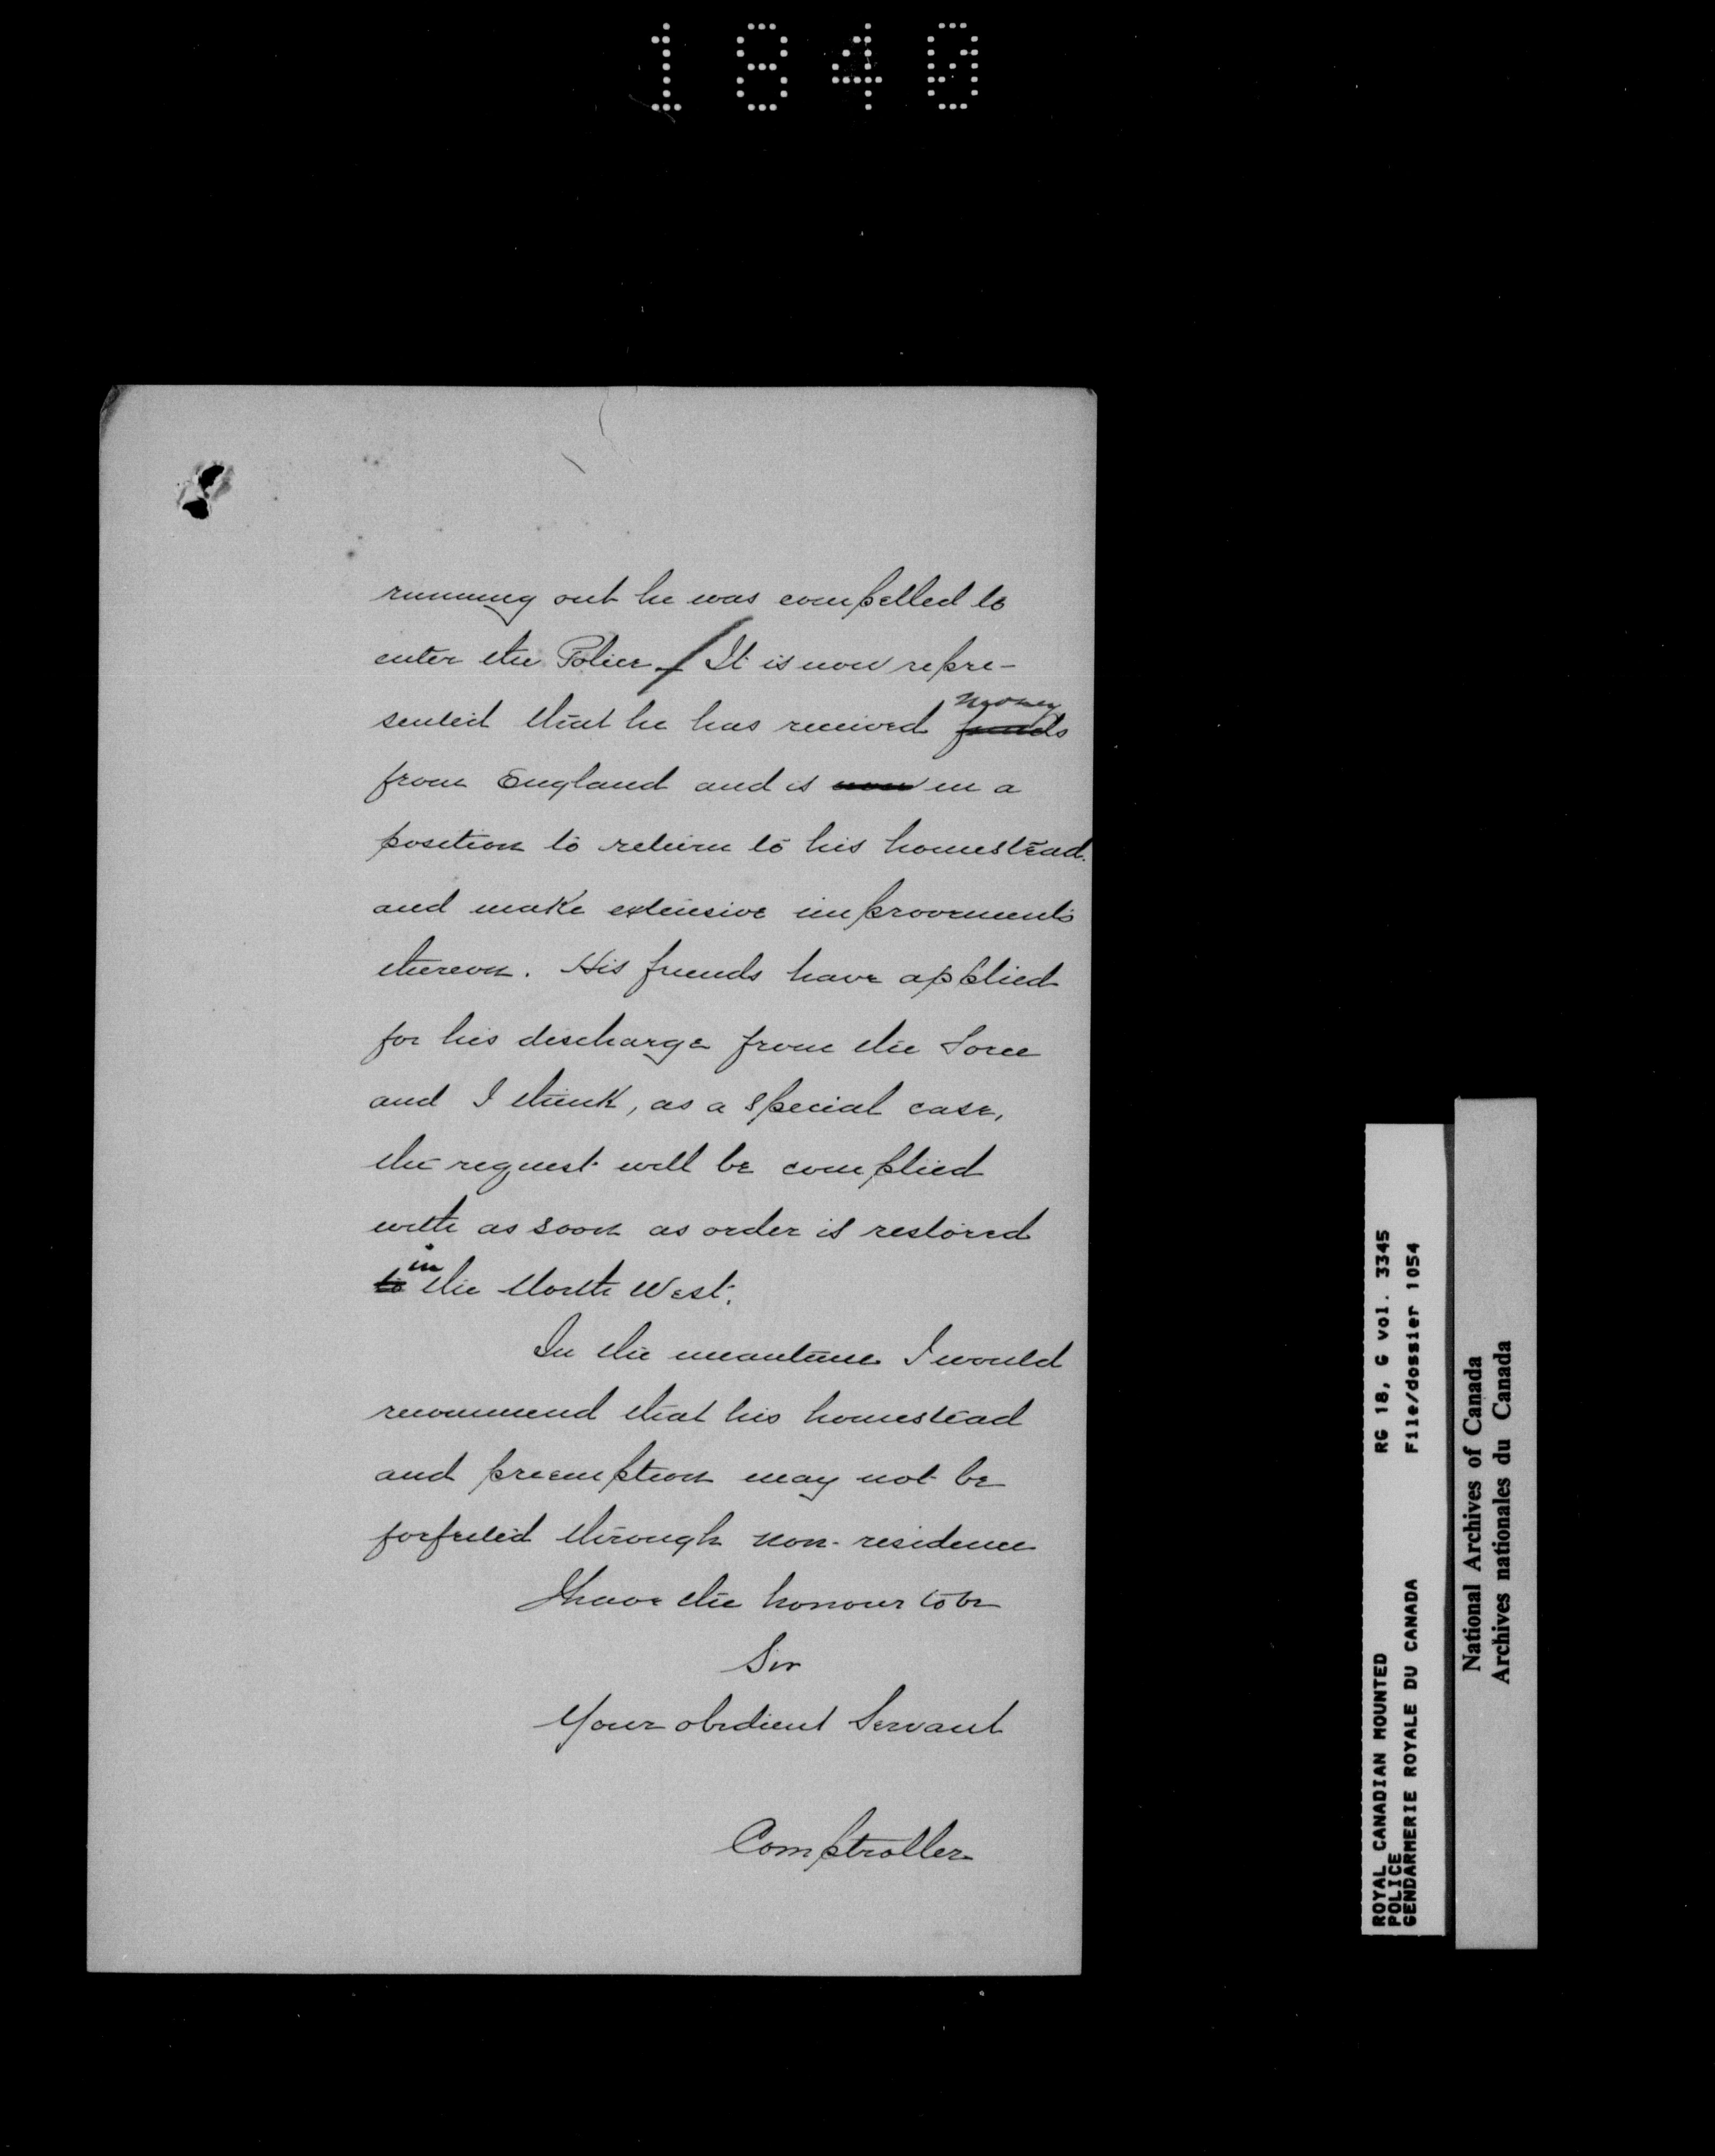 1840
running out he was compelled to
enter the Police. / It is now repre-
sented that he has received funds money
from England and is now in a
position to return to his homestead.
and make extensive improvements
thereon. His friends have applied
for his discharge from the Force
and I think, as a special case,
the request will be complied
with as soon as order is restored
to in the North West.
In the meantime I would
recommend that his homestead
and preemption may not be
forfeited through non-residence
I have the honour to be
Sir
Your obedient Servant
Comptroller
ROYAL CANADIAN MOUNTED
POLICE
GENDARMERIE ROYALE DU CANADA
RG 18, G vol. 3345
File/dossier 1054
National Archives of Canada
Archives nationales du Canada